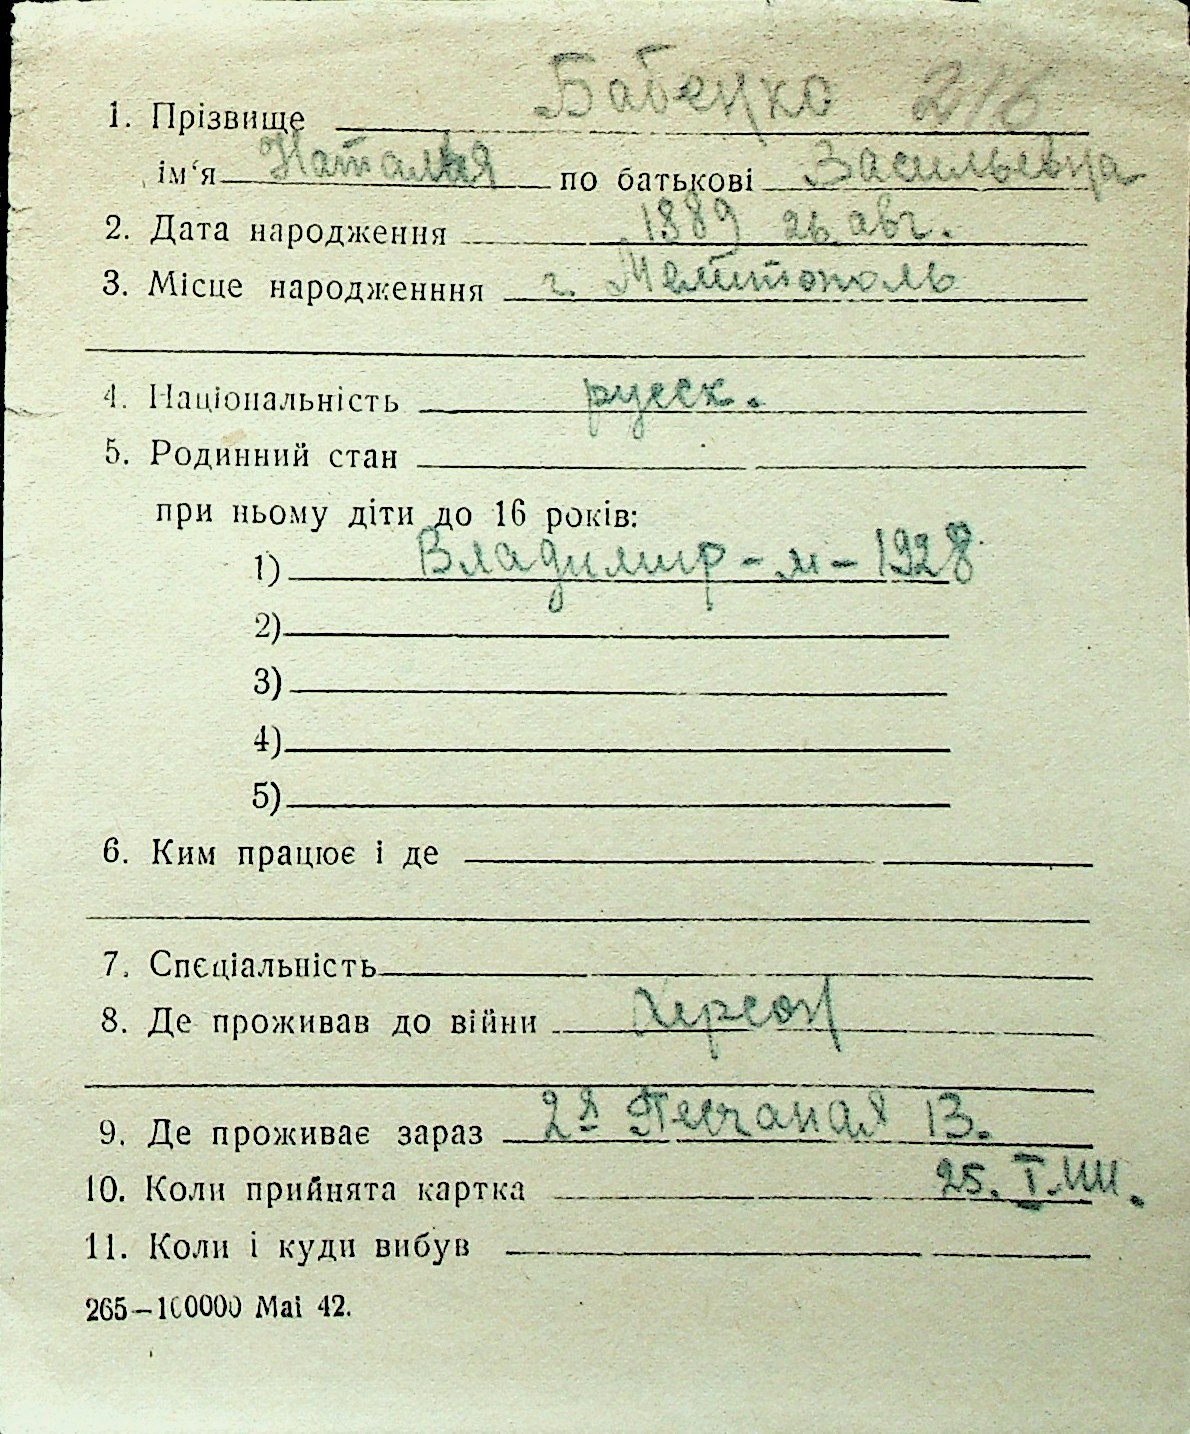 1. Прізвище Бабенко 216
ім‘я Наталья по батькові Васильевна
2. Дата народження 1889 26 авг.
3. Місце народженння г. Мелитополь
4. Національність русск.
5. Родинний стан
при ньому діти до 16 років:
1) Владимир - м - 1928
2)
3)
4)
5)
6. Ким працює і де
7. Спєціальність
8. Де проживав до війни Херсон
9. Де проживає зараз 2я Песчаная 13.
10. Коли прийнята картка 25. I.
11. Коли і куди вибув
265—100000 Mai 42.